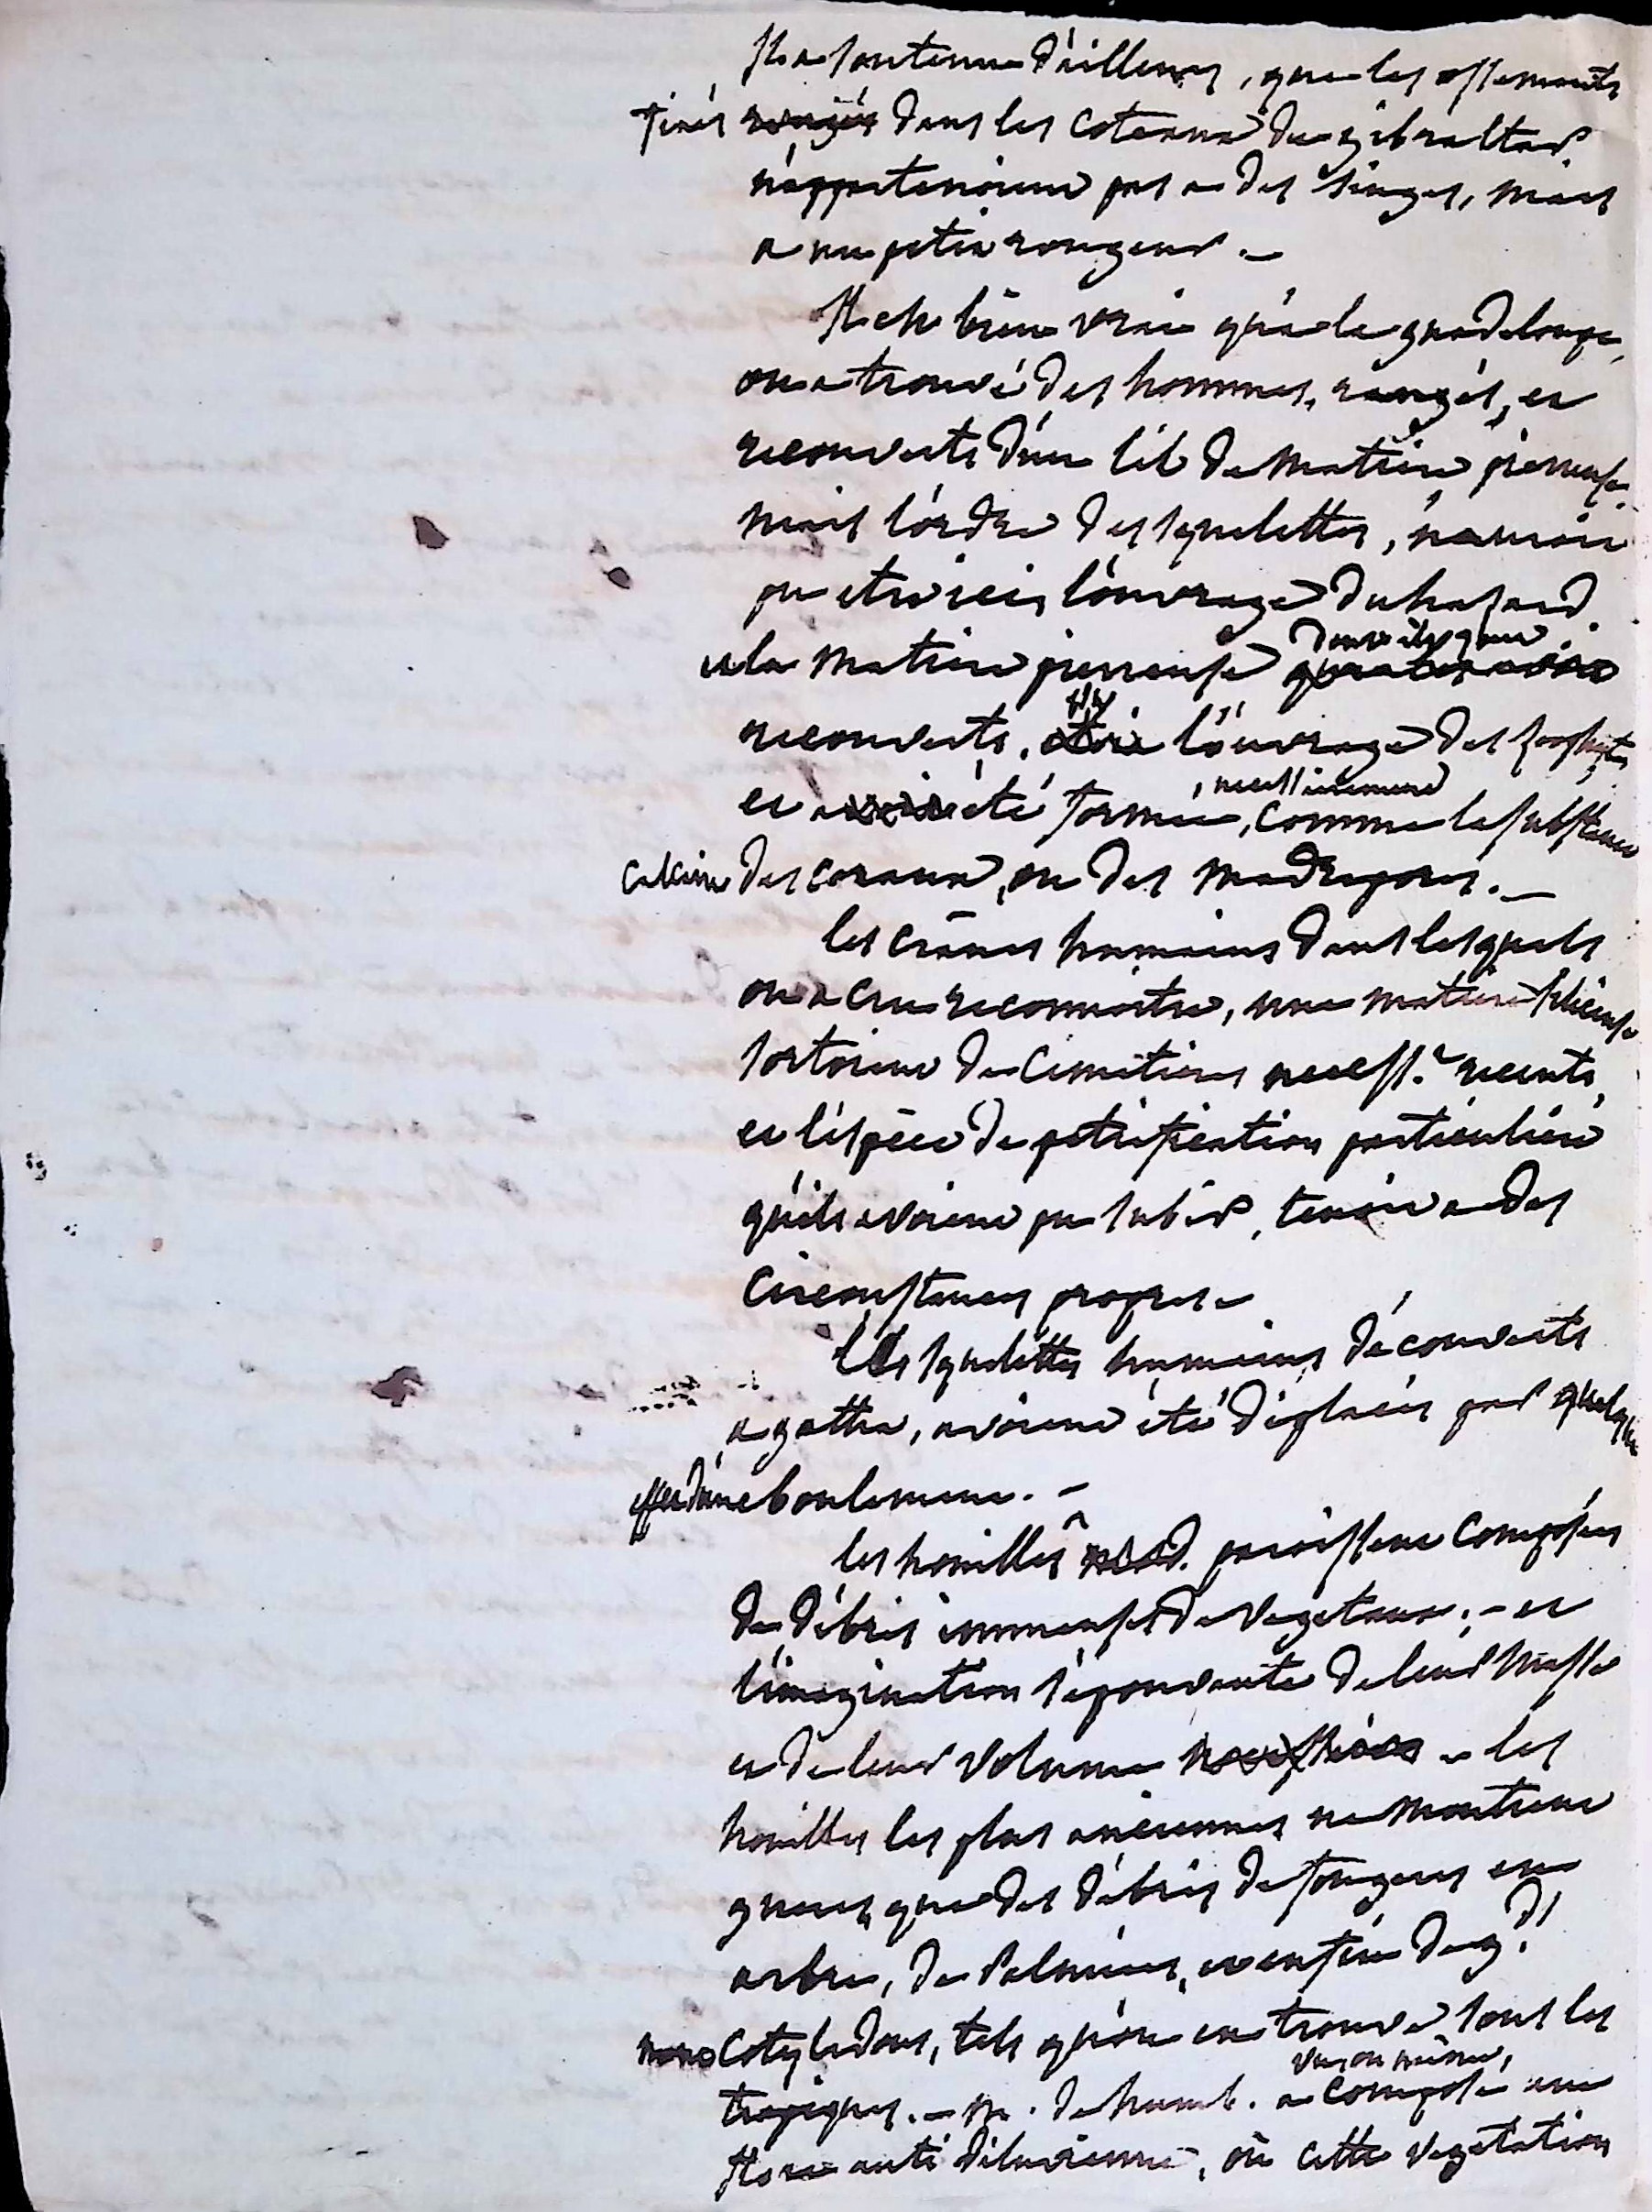 Il a soutenu d'ailleurs, que les ossements
tirés dans les coteaux de gibraltar
n'appartenoient pas a des singes, mais
a un petit rongeur. —
Il est bien vrai qu'a la guadeloupe,
on a trouvé des hommes, rangés, et
recouverts d'un lit de matiere pierreuse.
mais l'ordre des squelettes, n'auroit
pu etre ici, l'ouvrage du hasard.
et la matiere pierreuse dont ils sont
recouverts, l'ouvrage des zoophites,
et a été formée, necessairement, comme la substance
calcaire des coraux, ou des madrepores. —
les crânes humains dans lesquels
on a cru reconnoitre, une matiere silicieuse
sortoient de cimetieres necess.t recents,
et l'espece de petrification particuliere
qu'ils avoient pu subir, tenoit a des
circonstances propres —
les squelettes humains découverts
a gotha, avoient été déplacés par quelque
effet d'un eboulement. —
les houilles paroissent composées
de débris immenses de vegetaux; — et
l'imagination s'epouvante de leur masse
et de leur volume — les
houilles les plus anciennes ne montrent
gueres que des débris de fougeres en
arbre, de Palmiers, et enfin de g.ds
monocotyledons, tels qu'on en trouve sous les
tropiques. — m. de humb. a composé une
flore anti diluvienne, où cette vegetation